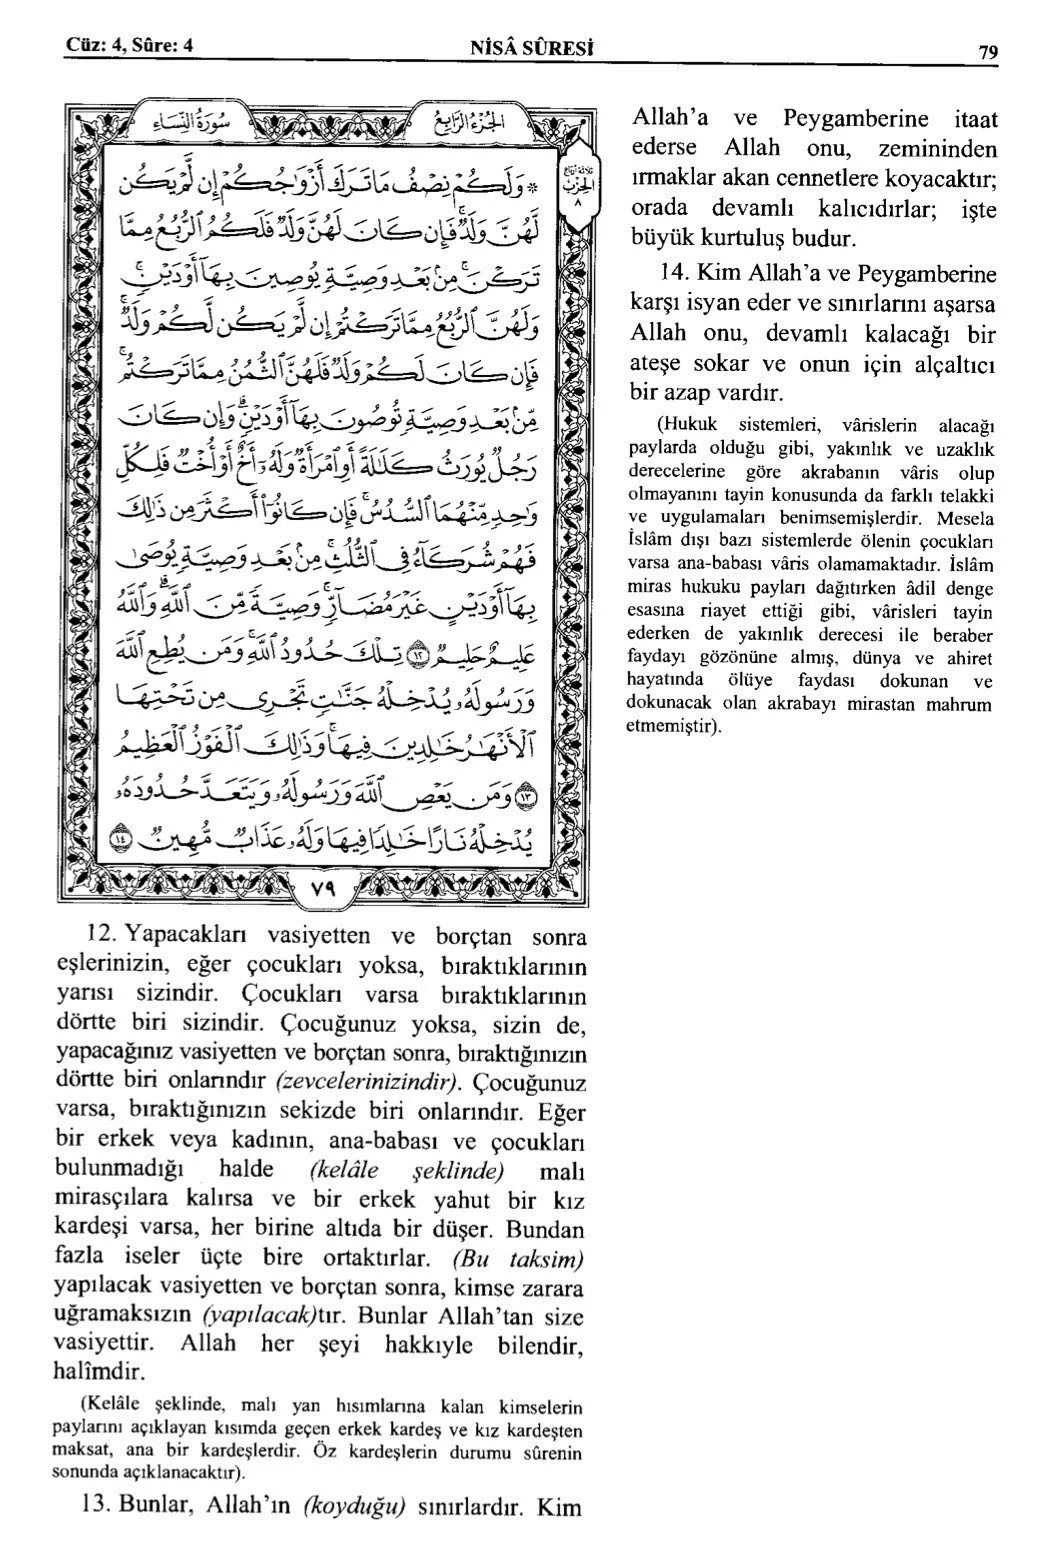 Cüz: 4, Sûre: 4
NİSÂ SÛRESİ
79
سُورَةُ النِّسَاءِ
الجُزْءُ الرَّابِعُ
الحِزْبُ
٨
* وَلَكُمْ نِصْفُ مَا تَرَكَ أَزْوَاجُكُمْ إِن لَّمْ يَكُن
لَّهُنَّ وَلَدٌ فَإِن كَانَ لَهُنَّ وَلَدٌ فَلَكُمُ الرُّبُعُ مِمَّا
تَرَكْنَ مِنْ بَعْدِ وَصِيَّةٍ يُوصِينَ بِهَا أَوْ دَيْنٍ
وَلَهُنَّ الرُّبُعُ مِمَّا تَرَكْتُمْ إِن لَّمْ يَكُن لَّكُمْ وَلَدٌ
فَإِن كَانَ لَكُمْ وَلَدٌ فَلَهُنَّ الثُّمُنُ مِمَّا تَرَكْتُم
مِّنْ بَعْدِ وَصِيَّةٍ تُوصُونَ بِهَا أَوْ دَيْنٍ وَإِن كَانَ
رَجُلٌ يُورَثُ كَلَالَةً أَوِ امْرَأَةٌ وَلَهُ أَخٌ أَوْ أُخْتٌ فَلِكُلِّ
وَاحِدٍ مِّنْهُمَا السُّدُسُ فَإِن كَانُوا أَكْثَرَ مِن ذَٰلِكَ
فَهُمْ شُرَكَاءُ فِي الثُّلُثِ مِنْ بَعْدِ وَصِيَّةٍ يُوصَىٰ
بِهَا أَوْ دَيْنٍ غَيْرَ مُضَارٍّ وَصِيَّةً مِّنَ اللَّهِ وَاللَّهُ
عَلِيمٌ حَلِيمٌ ١٢ تِلْكَ حُدُودُ اللَّهِ وَمَن يُطِعِ اللَّهَ
وَرَسُولَهُ يُدْخِلْهُ جَنَّاتٍ تَجْرِي مِن تَحْتِهَا
الْأَنْهَارُ خَالِدِينَ فِيهَا وَذَٰلِكَ الْفَوْزُ الْعَظِيمُ
١٣ وَمَن يَعْصِ اللَّهَ وَرَسُولَهُ وَيَتَعَدَّ حُدُودَهُ
يُدْخِلْهُ نَارًا خَالِدًا فِيهَا وَلَهُ عَذَابٌ مُّهِينٌ ١٤
٧٩
12. Yapacakları vasiyetten ve borçtan sonra
eşlerinizin, eğer çocukları yoksa, bıraktıklarının
yarısı sizindir. Çocukları varsa bıraktıklarının
dörtte biri sizindir. Çocuğunuz yoksa, sizin de,
yapacağınız vasiyetten ve borçtan sonra, bıraktığınızın
dörtte biri onlarındır (zevcelerinizindir). Çocuğunuz
varsa, bıraktığınızın sekizde biri onlarındır. Eğer
bir erkek veya kadının, ana-babası ve çocukları
bulunmadığı halde (kelâle şeklinde) malı
mirasçılara kalırsa ve bir erkek yahut bir kız
kardeşi varsa, her birine altıda bir düşer. Bundan
fazla iseler üçte bire ortaktırlar. (Bu taksim)
yapılacak vasiyetten ve borçtan sonra, kimse zarara
uğramaksızın (yapılacak)tır. Bunlar Allah'tan size
vasiyettir. Allah her şeyi hakkıyle bilendir,
halîmdir.
(Kelâle şeklinde, malı yan hısımlarına kalan kimselerin
paylarını açıklayan kısımda geçen erkek kardeş ve kız kardeşten
maksat, ana bir kardeşlerdir. Öz kardeşlerin durumu sûrenin
sonunda açıklanacaktır).
13. Bunlar, Allah'ın (koyduğu) sınırlardır. Kim
Allah'a ve Peygamberine itaat
ederse Allah onu, zemininden
ırmaklar akan cennetlere koyacaktır;
orada devamlı kalıcıdırlar; işte
büyük kurtuluş budur.
14. Kim Allah'a ve Peygamberine
karşı isyan eder ve sınırlarını aşarsa
Allah onu, devamlı kalacağı bir
ateşe sokar ve onun için alçaltıcı
bir azap vardır.
(Hukuk sistemleri, vârislerin alacağı
paylarda olduğu gibi, yakınlık ve uzaklık
derecelerine göre akrabanın vâris olup
olmayanını tayin konusunda da farklı telakki
ve uygulamaları benimsemişlerdir. Mesela
İslâm dışı bazı sistemlerde ölenin çocukları
varsa ana-babası vâris olamamaktadır. İslâm
miras hukuku payları dağıtırken âdil denge
esasına riayet ettiği gibi, vârisleri tayin
ederken de yakınlık derecesi ile beraber
faydayı gözönüne almış, dünya ve ahiret
hayatında ölüye faydası dokunan ve
dokunacak olan akrabayı mirastan mahrum
etmemiştir).